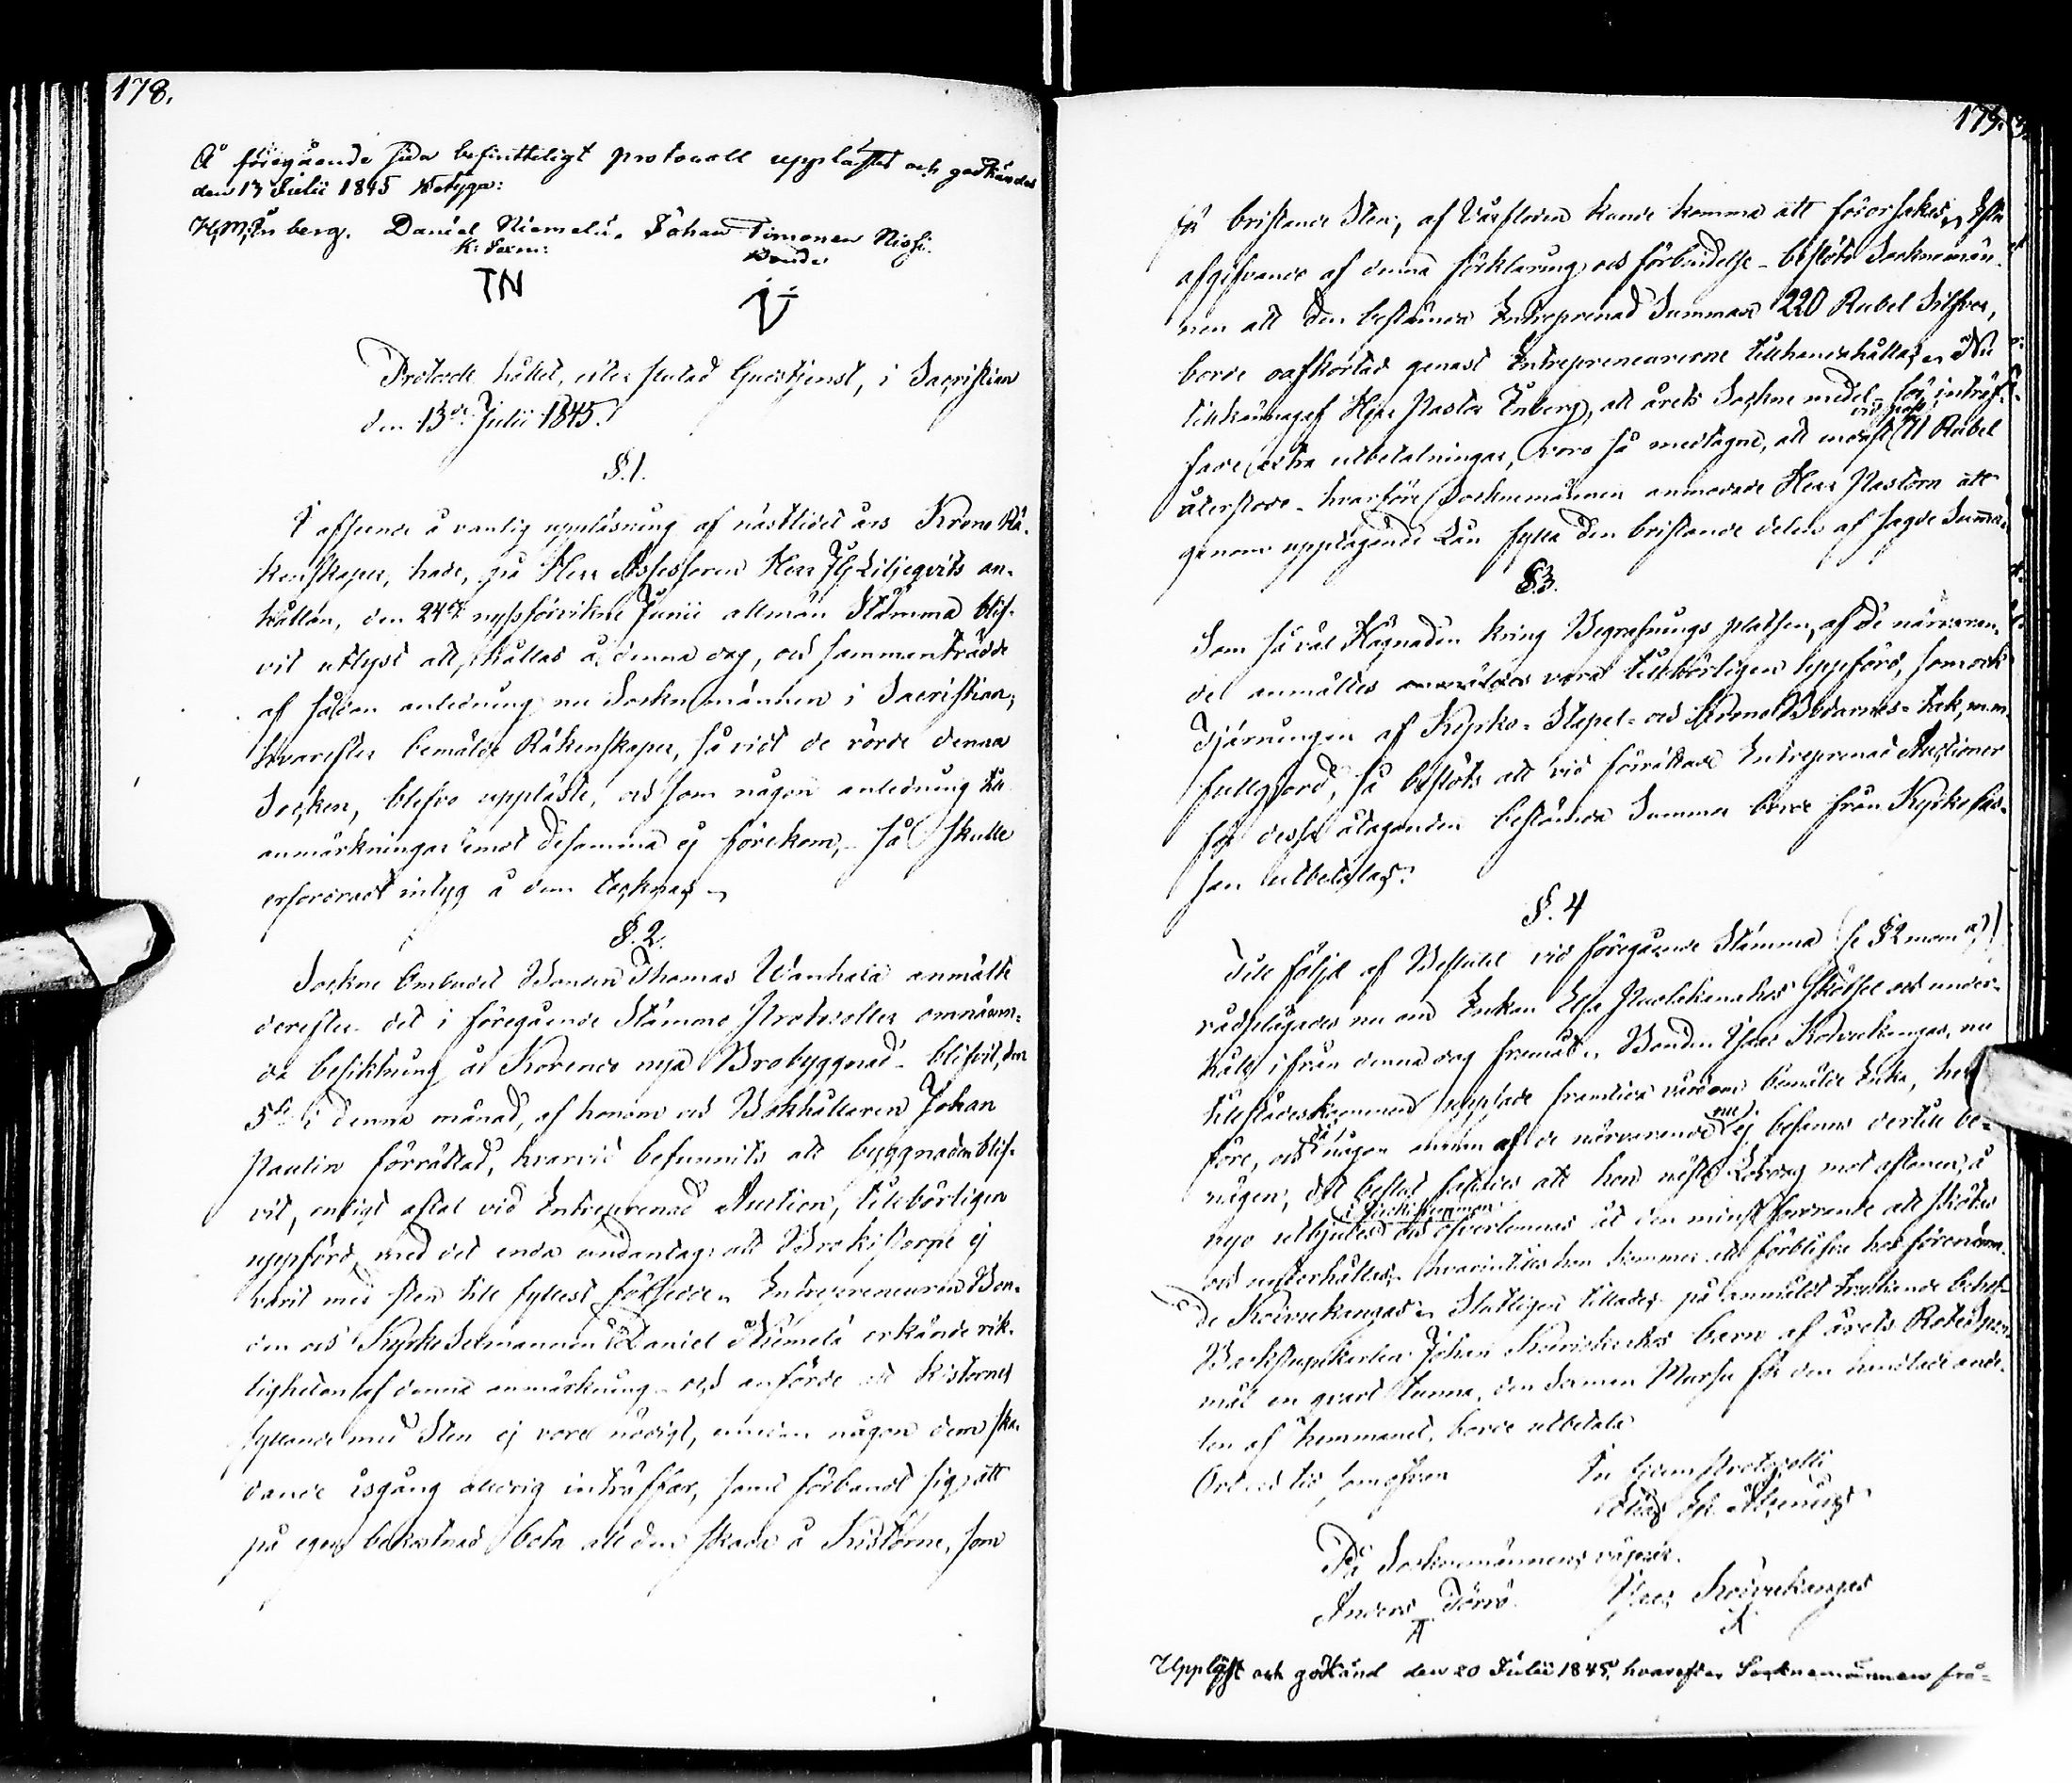 178.
Å föregående sida befinteligt protocoll upplästes och godkändes
den 13 Julii 1845 Betyga:
H. M. Enberg. Daniel Niemelä. Johan Timonen Nissi.
K: Sexm: Bonde
TN
Protocoll hållet, efter slutad Gudstjenst, i Sacristian
den 13de Julii 1845.
§. 1.
I afseende å vanlig uppläsning af nästlidet års Krono Rä-
kenskaper, hade, på Herr Assessoren Herr Liljeqvists an-
hållan, den 24de nyssförvikne Junii allmän Stämma blif-
vit utlyst att hållas å denna dag, och sammanträdde
af sådan anledning nu Socknemännen i Sacristian,
hvarefter bemälde Räkenskaper, så vidt de rörde denna
Socken, blefvo uppläste, och som någon anledning till
anmärkningar emot desamma ej förekom, så skulle
erforderligt intyg å dem tecknas.
§. 2.
Sockne Ombudet Bonden Thomas Wanhala anmälte
derefter det i föregående Stämmo Protocoller omnämn-
da besiktning å Korends nya Brobyggnad blifvit, den
5te i denna månad, af honom och Bokhållaren Johan
Paulin förrättad, hvarvid befunnits att byggnaden blif-
vit, enligt aftal vid Entreprenad Auction, tillbörligen
uppförd, med det enda undantag att Brokistorne ej
varit med sten till fyllest försedde. Entrepreneuren Bon-
den och Kyrko Sexmannen Daniel Niemelä erkände rik-
tigheten af denna anmärkning och anförde att kistornes
fyllande med Sten ej vore nödigt, emedan någon dem ska-
dande isgång aldrig inträffar, samt förbandt sig att
på egen bekostnad bota all den skada å Kistorne, som
179.
bristande Sten, af Vårfloden kunde komma att förorsakas. Efter
afgifvande af denna förklaring och förbindelse beslöto Socknemän-
nen att den bestämda Entreprenad Summan 220 Rubel Silfver,
borde oafkortad genast Entrepreneurerne tillhandahållas. Nu
tillkännagaf Herr Pastor Enberg, att årets Sockne medel för inträf-
fade extra utbetalningar, voro så medtagne, att endast 11 Rubel
vid pass
återstode, hvarföre Socknemännen anmodade Herr Pastorn att
genom upptagande Lån fylla den bristande delen af sagde Summa.
§ 3.
Som så väl Hägnaden kring Begrafnings platsen, af de närvaran-
de anmältes vara tillbörligen uppförd, som ock
Tjärningen af Kyrko- Stapel- och Krono Bodarnes- tak, m.m.
fullgjord, så beslöts att vid förrättade Entreprenad Auctioner
för dessa åtaganden bestämda Summor borde från Kyrko kas-
san utbetalas.
§. 4
Till följd af Beslutet vid föregående Stämma (se § 2 mom a)
rådplägades nu om Enkan Elsa skötsel och under-
håll ifrån denna dag framåt. Bonden Isaac Koivukangas, nu
tillstädeskommen uppsade framtida vården om bemälde Enka,
före, och då någon annan af de närvarande nu ej befanns dertill be-
nägen, det beslut fattades att hon nästa Lördag mot aftonen, å
nyo utbjudes och öfverlemnas åt den minst fordrande att skötas
och underhållas, hvarintills hon kommer att förblifva hos förenämn-
de Koivukangas. Slutligen tillades på anmäldt trängande behof
Backstugukarlen Johan barn af årets Rotes
mål en quart tunna, den
ten af hemmanet, borde utbetala
Ort och tid, som ofvan In fidem Protocolli
På Socknemännens vägnar.
Anders Törrö. Isac Koivukangas
Uppläst och godkänd den 20 Julii 1845, hvarefter Socknemännen frå-